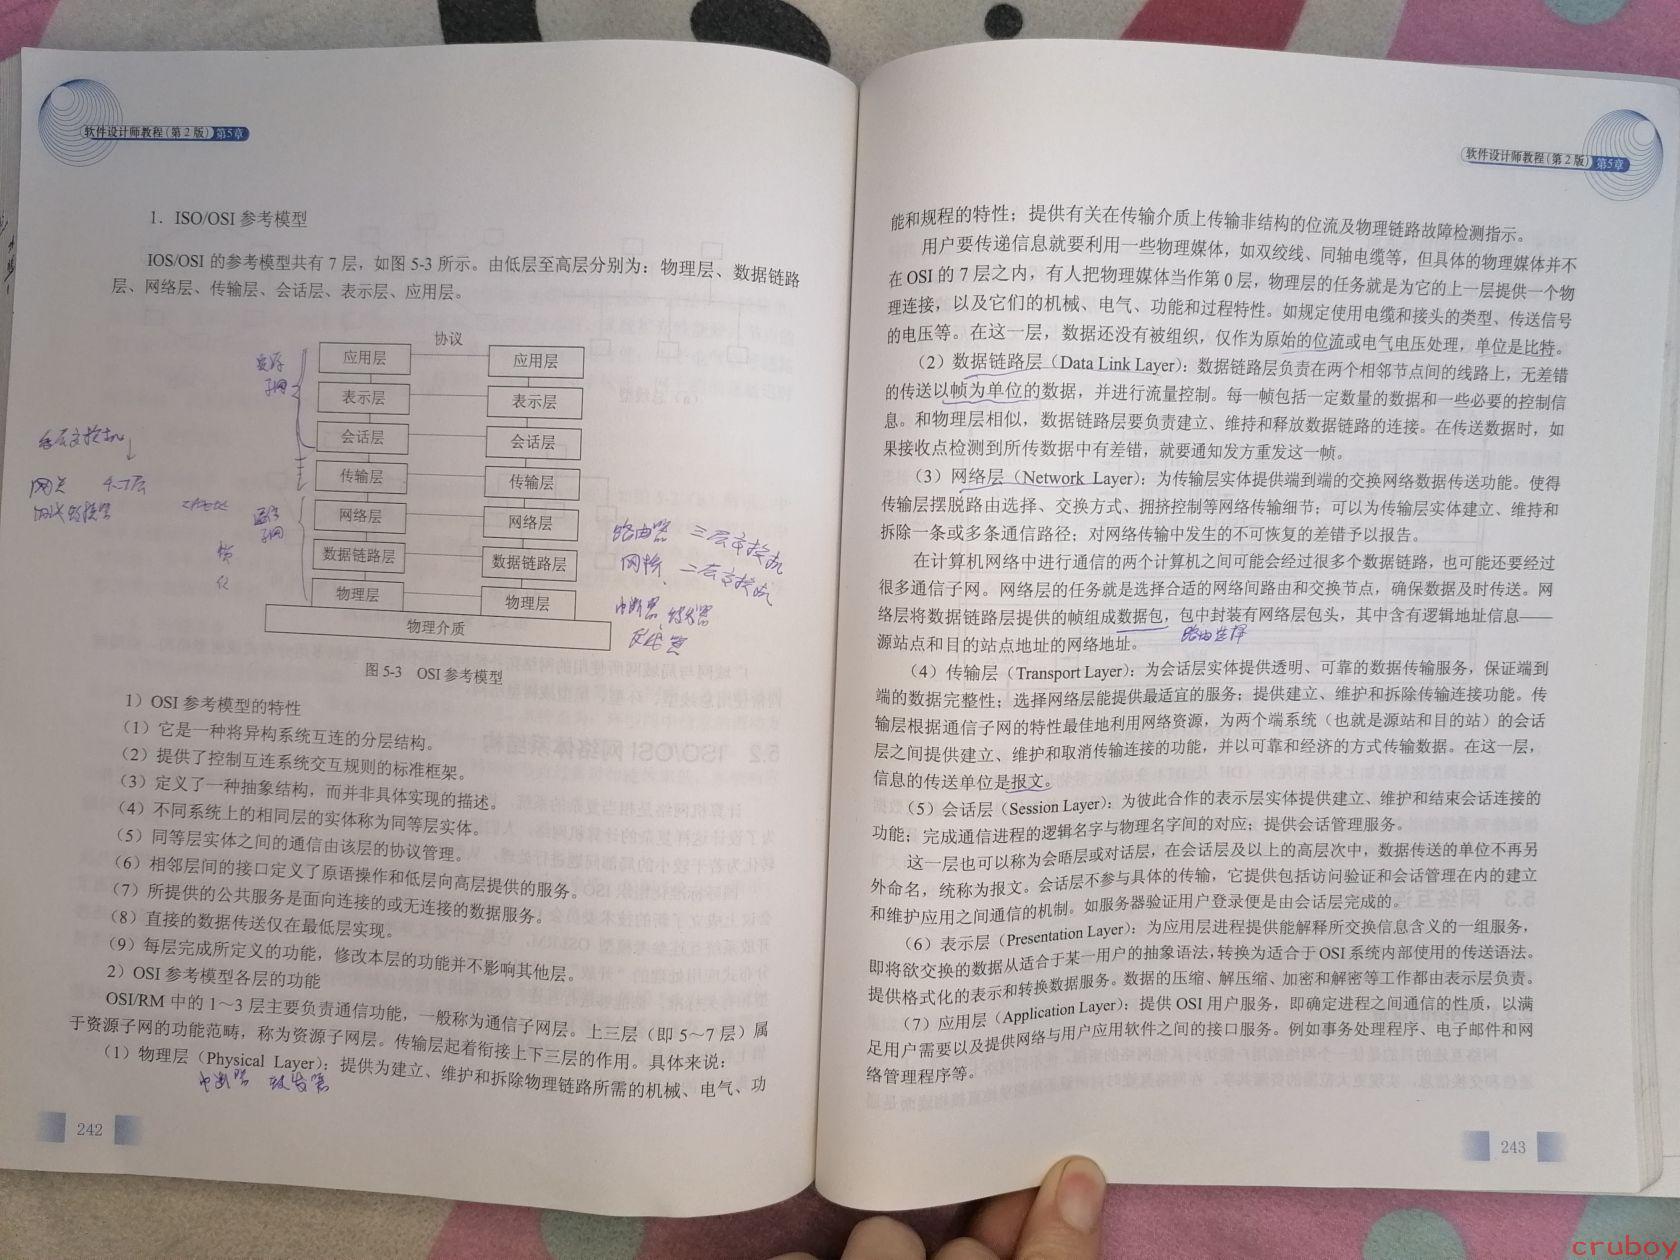 软件设计师教程(第2版) 第5章
1．ISO/OSI 参考模型
IOS/OSI 的参考模型共有 7 层，如图 5-3 所示。由低层至高层分别为：物理层、数据链路
层、网络层、传输层、会话层、表示层、应用层。
协议
应用层 应用层
表示层 表示层
会话层 会话层
传输层 传输层
网络层 网络层
数据链路层 数据链路层
物理层 物理层
物理介质
资源
子网
网关 4-7层
通信
子网
路由器 三层交换机
网桥、二层交换机
中断器
图 5-3 OSI 参考模型
1）OSI 参考模型的特性
（1）它是一种将异构系统互连的分层结构。
（2）提供了控制互连系统交互规则的标准框架。
（3）定义了一种抽象结构，而并非具体实现的描述。
（4）不同系统上的相同层的实体称为同等层实体。
（5）同等层实体之间的通信由该层的协议管理。
（6）相邻层间的接口定义了原语操作和低层向高层提供的服务。
（7）所提供的公共服务是面向连接的或无连接的数据服务。
（8）直接的数据传送仅在最低层实现。
（9）每层完成所定义的功能，修改本层的功能并不影响其他层。
2）OSI 参考模型各层的功能
OSI/RM 中的 1～3 层主要负责通信功能，一般称为通信子网层。上三层（即 5～7 层）属
于资源子网的功能范畴，称为资源子网层。传输层起着衔接上下三层的作用。具体来说：
（1）物理层（Physical Layer）：提供为建立、维护和拆除物理链路所需的机械、电气、功
242
软件设计师教程(第2版) 第5章
能和规程的特性；提供有关在传输介质上传输非结构的位流及物理链路故障检测指示。
用户要传递信息就要利用一些物理媒体，如双绞线、同轴电缆等，但具体的物理媒体并不
在 OSI 的 7 层之内，有人把物理媒体当作第 0 层，物理层的任务就是为它的上一层提供一个物
理连接，以及它们的机械、电气、功能和过程特性。如规定使用电缆和接头的类型、传送信号
的电压等。在这一层，数据还没有被组织，仅作为原始的位流或电气电压处理，单位是比特。
（2）数据链路层（Data Link Layer）：数据链路层负责在两个相邻节点间的线路上，无差错
的传送以帧为单位的数据，并进行流量控制。每一帧包括一定数量的数据和一些必要的控制信
息。和物理层相似，数据链路层要负责建立、维持和释放数据链路的连接。在传送数据时，如
果接收点检测到所传数据中有差错，就要通知发方重发这一帧。
（3）网络层（Network Layer）：为传输层实体提供端到端的交换网络数据传送功能。使得
传输层摆脱路由选择、交换方式、拥挤控制等网络传输细节；可以为传输层实体建立、维持和
拆除一条或多条通信路径；对网络传输中发生的不可恢复的差错予以报告。
在计算机网络中进行通信的两个计算机之间可能会经过很多个数据链路，也可能还要经过
很多通信子网。网络层的任务就是选择合适的网络间路由和交换节点，确保数据及时传送。网
络层将数据链路层提供的帧组成数据包，包中封装有网络层包头，其中含有逻辑地址信息——
路由选择
源站点和目的站点地址的网络地址。
（4）传输层（Transport Layer）：为会话层实体提供透明、可靠的数据传输服务，保证端到
端的数据完整性；选择网络层能提供最适宜的服务；提供建立、维护和拆除传输连接功能。传
输层根据通信子网的特性最佳地利用网络资源，为两个端系统（也就是源站和目的站）的会话
层之间提供建立、维护和取消传输连接的功能，并以可靠和经济的方式传输数据。在这一层，
信息的传送单位是报文。
（5）会话层（Session Layer）：为彼此合作的表示层实体提供建立、维护和结束会话连接的
功能；完成通信进程的逻辑名字与物理名字间的对应；提供会话管理服务。
这一层也可以称为会晤层或对话层，在会话层及以上的高层次中，数据传送的单位不再另
外命名，统称为报文。会话层不参与具体的传输，它提供包括访问验证和会话管理在内的建立
和维护应用之间通信的机制。如服务器验证用户登录便是由会话层完成的。
（6）表示层（Presentation Layer）：为应用层进程提供能解释所交换信息含义的一组服务，
即将欲交换的数据从适合于某一用户的抽象语法，转换为适合于 OSI 系统内部使用的传送语法。
提供格式化的表示和转换数据服务。数据的压缩、解压缩、加密和解密等工作都由表示层负责。
（7）应用层（Application Layer）：提供 OSI 用户服务，即确定进程之间通信的性质，以满
足用户需要以及提供网络与用户应用软件之间的接口服务。例如事务处理程序、电子邮件和网
络管理程序等。
243
cruboy